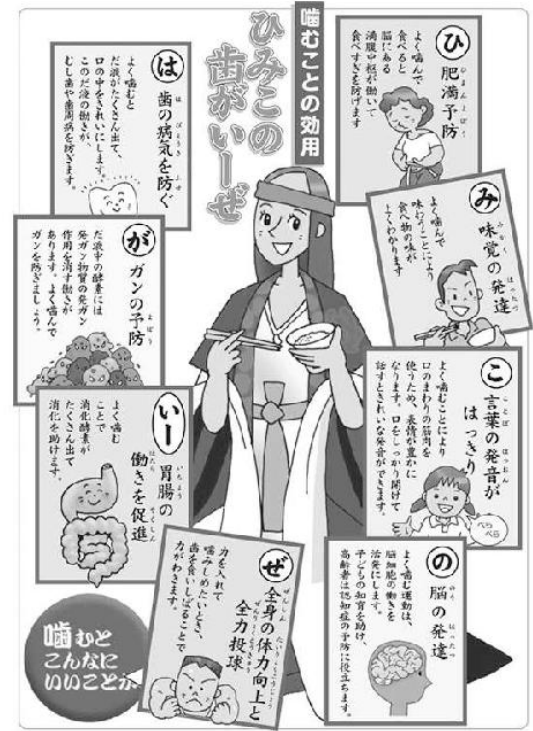 噛むことの効用
ひみこの
歯がいーぜ
ひ
肥満予防
よく噛んで
食べると
脳にある
満腹中枢が働いて
食べすぎを防げます
み
味覚の発達
よく噛んで
味わうことにより
食べ物の味が
よくわかります
こ
言葉の発音が
はっきり
よく噛むことにより
口のまわりの筋肉を
使うため、表情が豊かに
なります。口をしっかり開けて
話すときれいな発音ができます。
ぺら
ぺら
の
脳の発達
よく噛む運動は、
脳細胞の働きを
活発にします。
子どもの知育を助け、
高齢者は認知症の予防に役立ちます。
は
歯の病気を防ぐ
よく噛むと
だ液がたくさん出て、
口の中をきれいにします。
このだ液の働きが、
むし歯や歯周病を防ぎます。
が
ガンの予防
だ液中の酵素には
発ガン物質の発ガン
作用を消す働きが
あります。よく噛んで
ガンを防ぎましょう。
いー
胃腸の
働きを促進
よく噛む
ことで
消化酵素が
たくさん出て
消化を助けます。
ぜ
全身の体力向上と
全力投球
力を入れて
噛みしめたいとき、
歯を食いしばることで
力がわきます。
噛むと
こんなに
いいことが